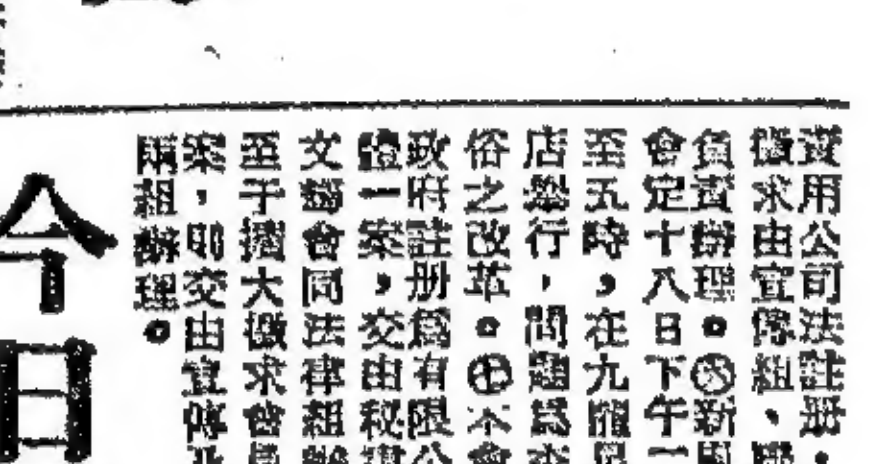 資用公司法註册，
徵求由宣傳組、聯
負責辦理。㊅新
會定十八日下午二
至五時，在九龍
店舉行，問題爲
俗之改革。㊆本會
政府註册爲有限公
一案，交由秘書
文會同法律組辦
至于擴大徵求會員
案，則交由宣傳
兩組辦理。
今日